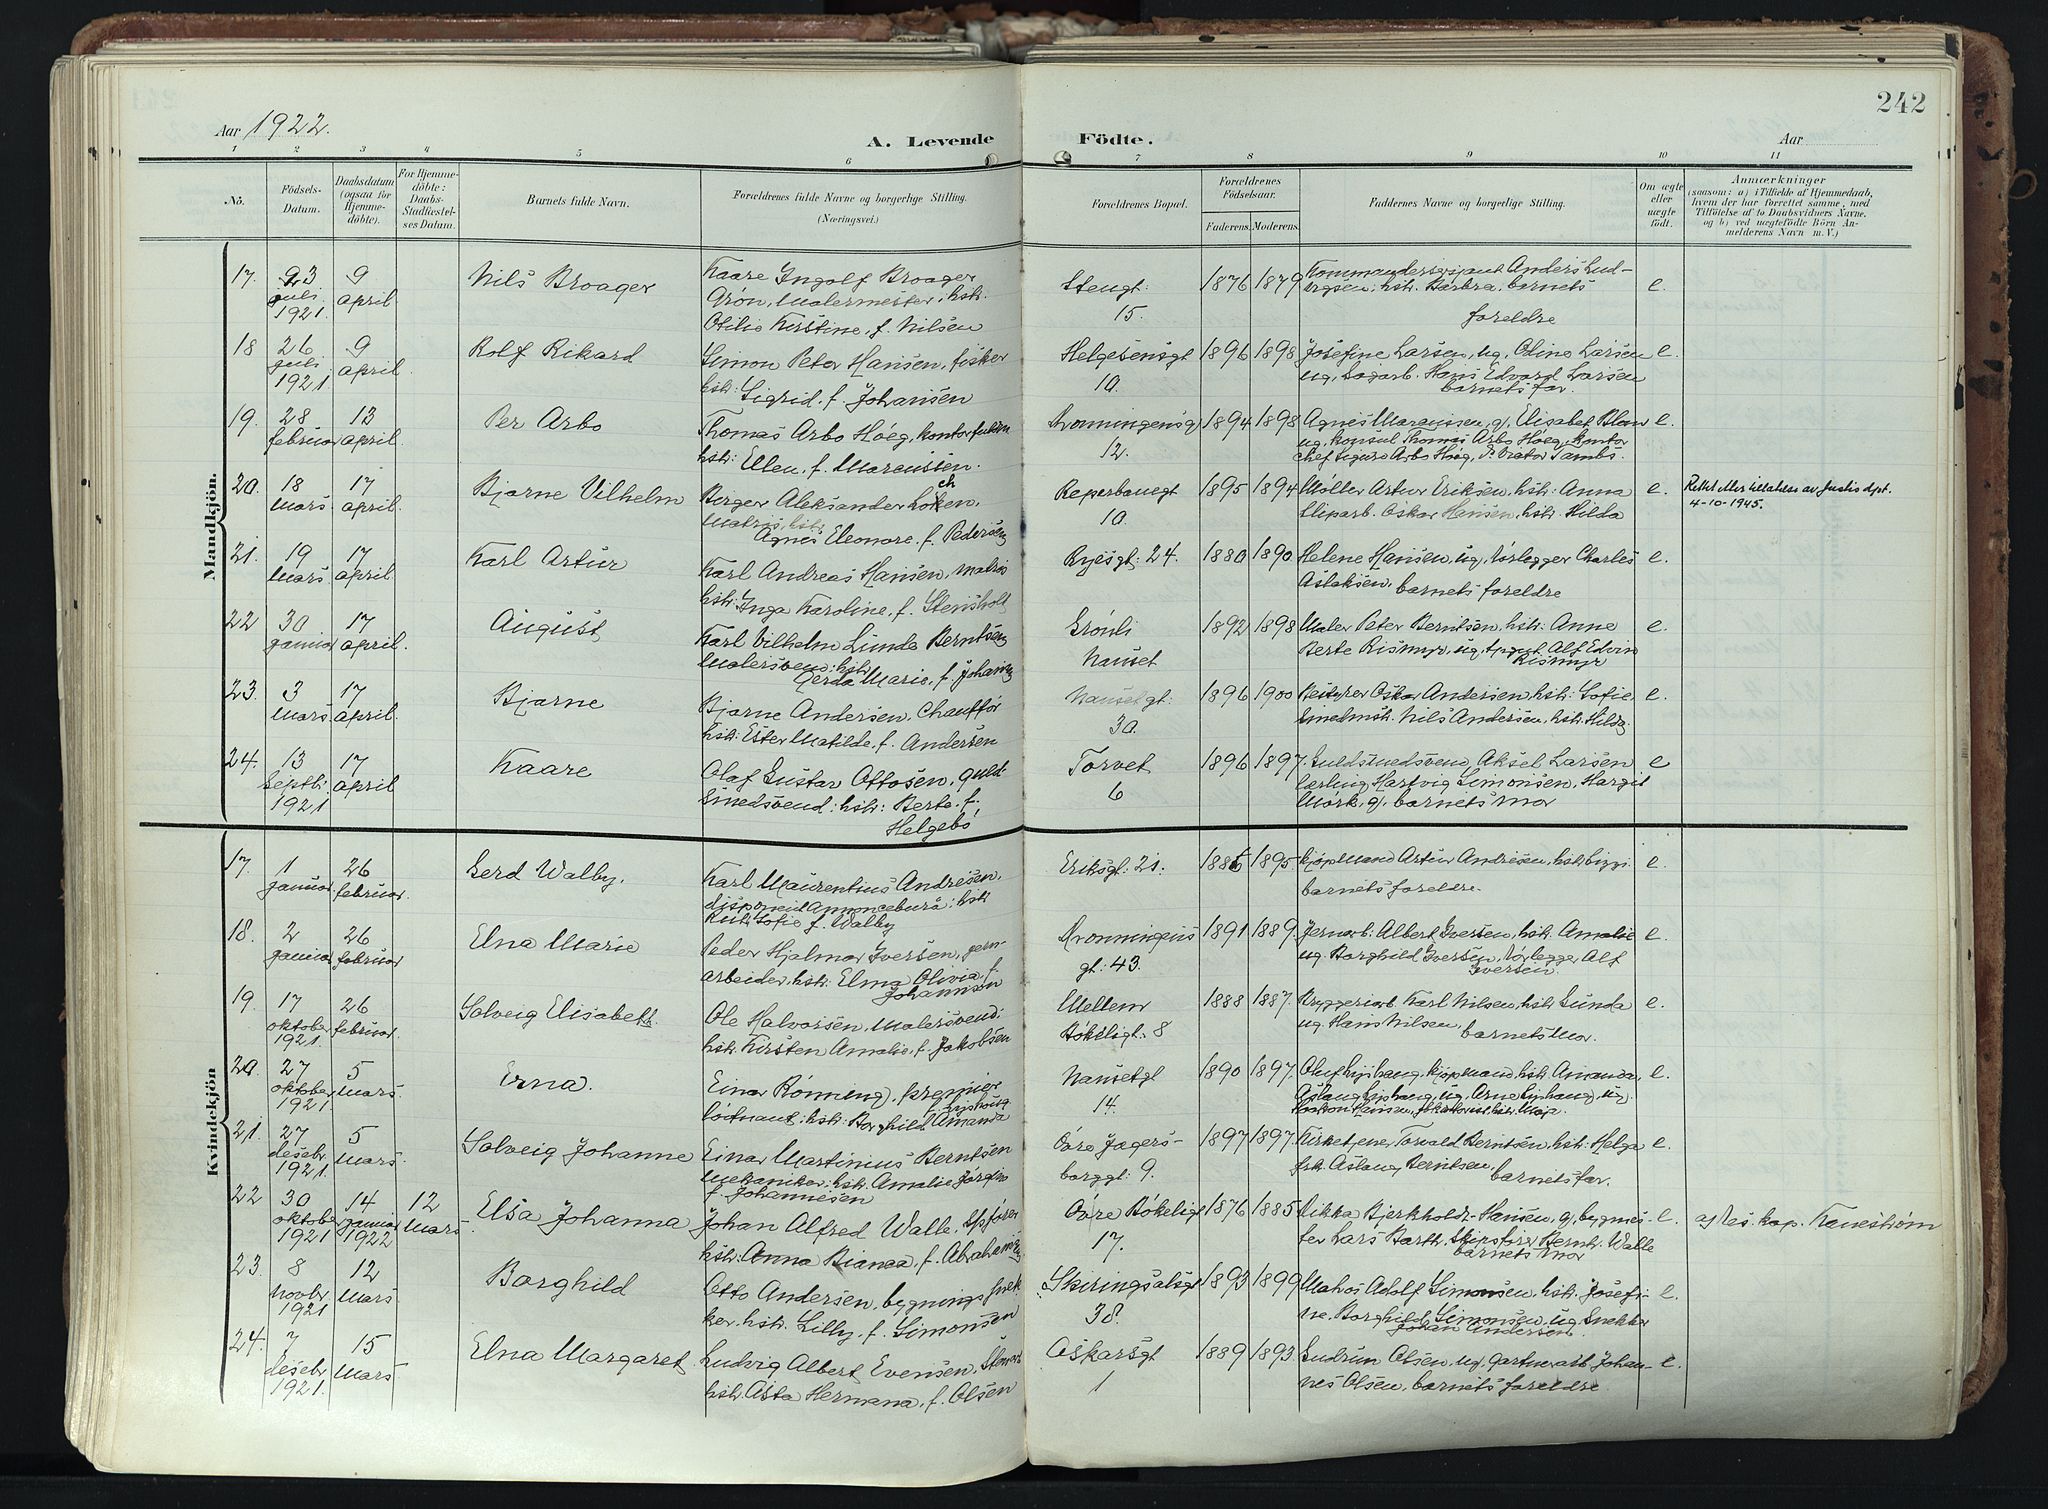 242
Aar 1922.
A. Levende Födte.
Aar
1 2 3 4 5 6 7 8 9 10 11
No.
Födsels-Datum.
Daabsdatum (ogsaa for Hjemmedöbte).
For Hjemmedöbte: Daabs-Stadfæstelses Datum.
Barnets fulde Navn.
Forældrenes fulde Navne og borgerlige Stilling.
(Næringsvei.)
Forældrenes Bopæl.
Forældrenes Födselsaar.
Faderens. Moderens.
Faddernes Navne og borgerlige Stilling.
Om ægte eller uægte födt.
Anmærkninger
(saasom: a) i Tilfælde af Hjemmedaab, hvem der har forrettet samme, med Tilföielse af to Daabsvidners Navne, og b) ved uægtefödte Börn Anmelderens Navn m. V.)
Mandkjön.
17. 23 juli 1921. 9 april Nils Broager
Kaare Ingolf Broager
Grön, Malermester, hstr.
Otilie Kirstine, f. Nilsen
Stengt: 15. 1876 1879
Anders Lud-
hstr. Barbra, barnets
foreldre
e.
18 26 juli 1921 9 april. Rolf Rikard
Simon Peter Hansen, fisker
hstr: Sigrid. f. Johansen
Helgesensgt 10. 1896 1898
Josefine Larsen, ug, Oline Larsen
ug, Sagarb. Hans Edvard Larsen
barnets far
e.
19. 28 februar 13 april. Per Arbo
Thomas Arbo Höeg, kontor
hstr: Ellen. f. Marcussen.
Dronningensg 12. 1894 1898
Agnes Marcussen, g, Elisabet
ug, konsul Thomas Arbo Höeg, kontor
chef Sigurd Arbo Höeg, Tambs.
e.
20. 18 mars 17 april. Bjarne Vilhelm
Birger Aleksander
Matros, hstr
Agnes Eleonore. f. Pedersen
Reperbanegt 10. 1895 1894
Möller Artur Eriksen, hstr: Anna
Sliparb. Oskar Hansen, hstr. Hilda
e.
Rettet etter tillatelse av Justis dpt. 4-10-1945.
21. 19 mars 17 april. Karl Artur
Karl Andreas Hansen, matros
hstr: Inga Karoline, f. Stensholt
Ryesgt: 24. 1880 1890
Helene Hansen, ug, törlegger Charles
Aslaksen, barnets foreldre
e.
22 30 januar 17 april. August
Karl Vilhelm Lunde Berntsen
Malersvend, hstr
Gerda Marie. f. Johansen
Grönli Nanset 1892 1898
Maler Peter Berntsen, hstr: Anne
Berte Rismyr, ug, Alf Edvin
Rismyr
e.
23. 3 mars 17 april. Bjarne
Bjarne Andersen, Chaufför
hstr: Ester Matilde. f. Andersen
Nansetgt: 30. 1896 1900
Oskar Andersen, hstr: Sofie
Nils Andersen, hstr: Hilda
e.
24. 13 septbr. 1921 17 april Kaare
Olaf Gustav Ottosen, guld-
smedsvend: hstr: Berte. f.
Helgebö
Torvet 6 1896 1897.
Guldsmedsvend Aksel Larsen
lærling Hartvig Simonsen, Margit
Mörk, g, barnets mor
e
Kvindekjön
17. 1 januar 26 februar. Gerd Walby.
Karl Maurentius Andresen,
disponent Annoncebyrå: hstr
Ruth Sofie f. Walby
Eriksgt: 21. 1885 1895.
Kjöpmand Artur Andresen, hstr
barnets foreldre.
e.
18. 2 januar 26 februar Elna Marie
Peder Hjalmar Iversen, jern-
arbeider. hstr: Elma Olivia. f.
Johannsen
Dronningens gt: 43. 1891 1889.
Jernarb: Albert Iversen, hstr. Amalie
ug. Borghild Iversen, törlegger Alf
Iversen.
e.
19. 17 oktober 1921 26 februar. Solveig Elisabeth.
Ole Halvorsen, Malersvend:
hstr. Kirsten Amalie, f. Jakobsen
Mellem Bökeligt: 8 1888 1887.
Bryggeriarb Karl Nilsen, hstr Gunda
ug. Hans Nilsen, barnets mor.
e.
20. 27 oktober 1921. 5 mars. Erna.
Einar Rönning, premier
löitnant: hstr: Borghild Amanda
Nansetgt 14. 1890 1897.
kjöpmand, hstr. Amanda,
Aslaug
Haakon Hansen,
e.
21. 27 desebr. 1921 5 mars. Solveig Johanne
Einar Martinius Berntsen
Mekaniker: hstr. Amalie Jörgine
f. Johannesen
Övre Jagers-
borggt: 9. 1897 1897.
Kirketjener Torvald Berntsen, hstr: Helga
frk. Aslaug Berntsen,
barnets far.
e.
22 30 oktober 1921 14 januar 1922 12 mars. Elsa Johanna
Johan Alfred Walle, Skpsförer
hstr: Anna Bianca, f. Abrahamsen
Övre Bökeligt 17. 1876 1885
Rikka Bjerkholdt-Hansen, g, bygmes-
ter Lars Barth, Skipsförer Bernh. Walle
barnets mor
e.
a) Res. kap. Kaneström
23. 8 novbr. 1921 12 mars. Borghild
Otto Andersen, bygningssnek
ker. hstr. Lilly, f. Simonsen
Skiringsalsgt 38. 1893 1899
Matros Adolf Simonsen, hstr. Josefi-
ne. Borghild Simonsen, ug, Snekker
Johan Andersen.
e.
24. 7 desebr. 1921. 15 mars Elna Margaret
Ludvig Albert Evensen,
hstr. Asta Hermana, f. Olsen
Oskarsgt 1 1889 1893.
Gudrun Olsen, ug, gartnerarb Johan-
nes Olsen, barnets foreldre
e.